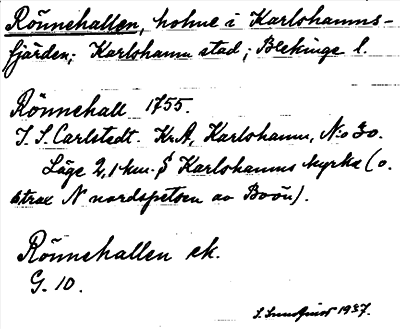 Rönnehallen, holme i Karlshamns-
fjärden; Karlshamn stad; Blekinge l.
Rönnehall 1755.
J. S. Carlstedt. KrA, Karlshamn, N:o 30.
Läge 2,1 km. S Karlshamns kyrka (o.
strax N nordspetsen av Boön).
Rönnehallen ek.
G. 10.
S. Sundquist 1937.